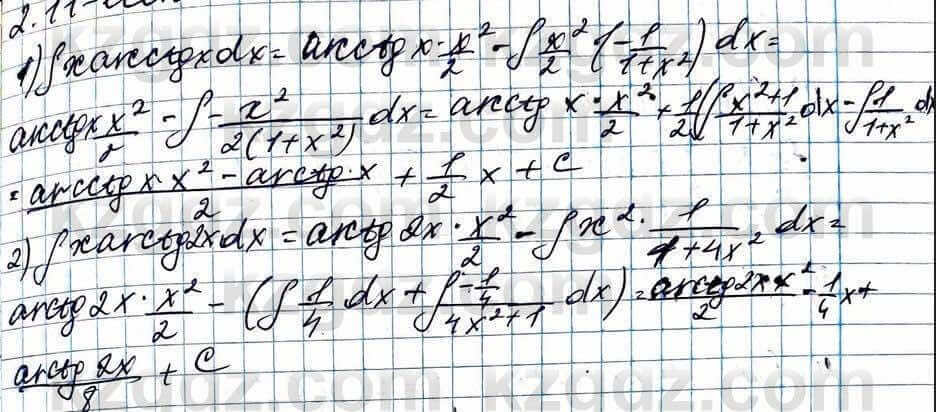 1) ∫xarcctgxdx = arcctg x · x²/2 - ∫ x²/2 (-1/(1+x²)) dx =
arcctgx x²/2 - ∫ - x²/(2(1+x²)) dx = arcctg x · x²/2 + 1/2 (∫ (x²+1)/(1+x²) dx - ∫ 1/(1+x²) dx
= (arcctg x · x² - arctg x)/2 + 1/2 x + C
2) ∫xarctg2xdx = arctg 2x · x²/2 - ∫ x² · 1/(1+4x²) dx =
arctg 2x · x²/2 - (∫ 1/4 dx + ∫ (-1/4)/(4x²+1) dx) = arctg 2x · x²/2 - 1/4 x +
arctg 2x/8 + C
kzgdz.com